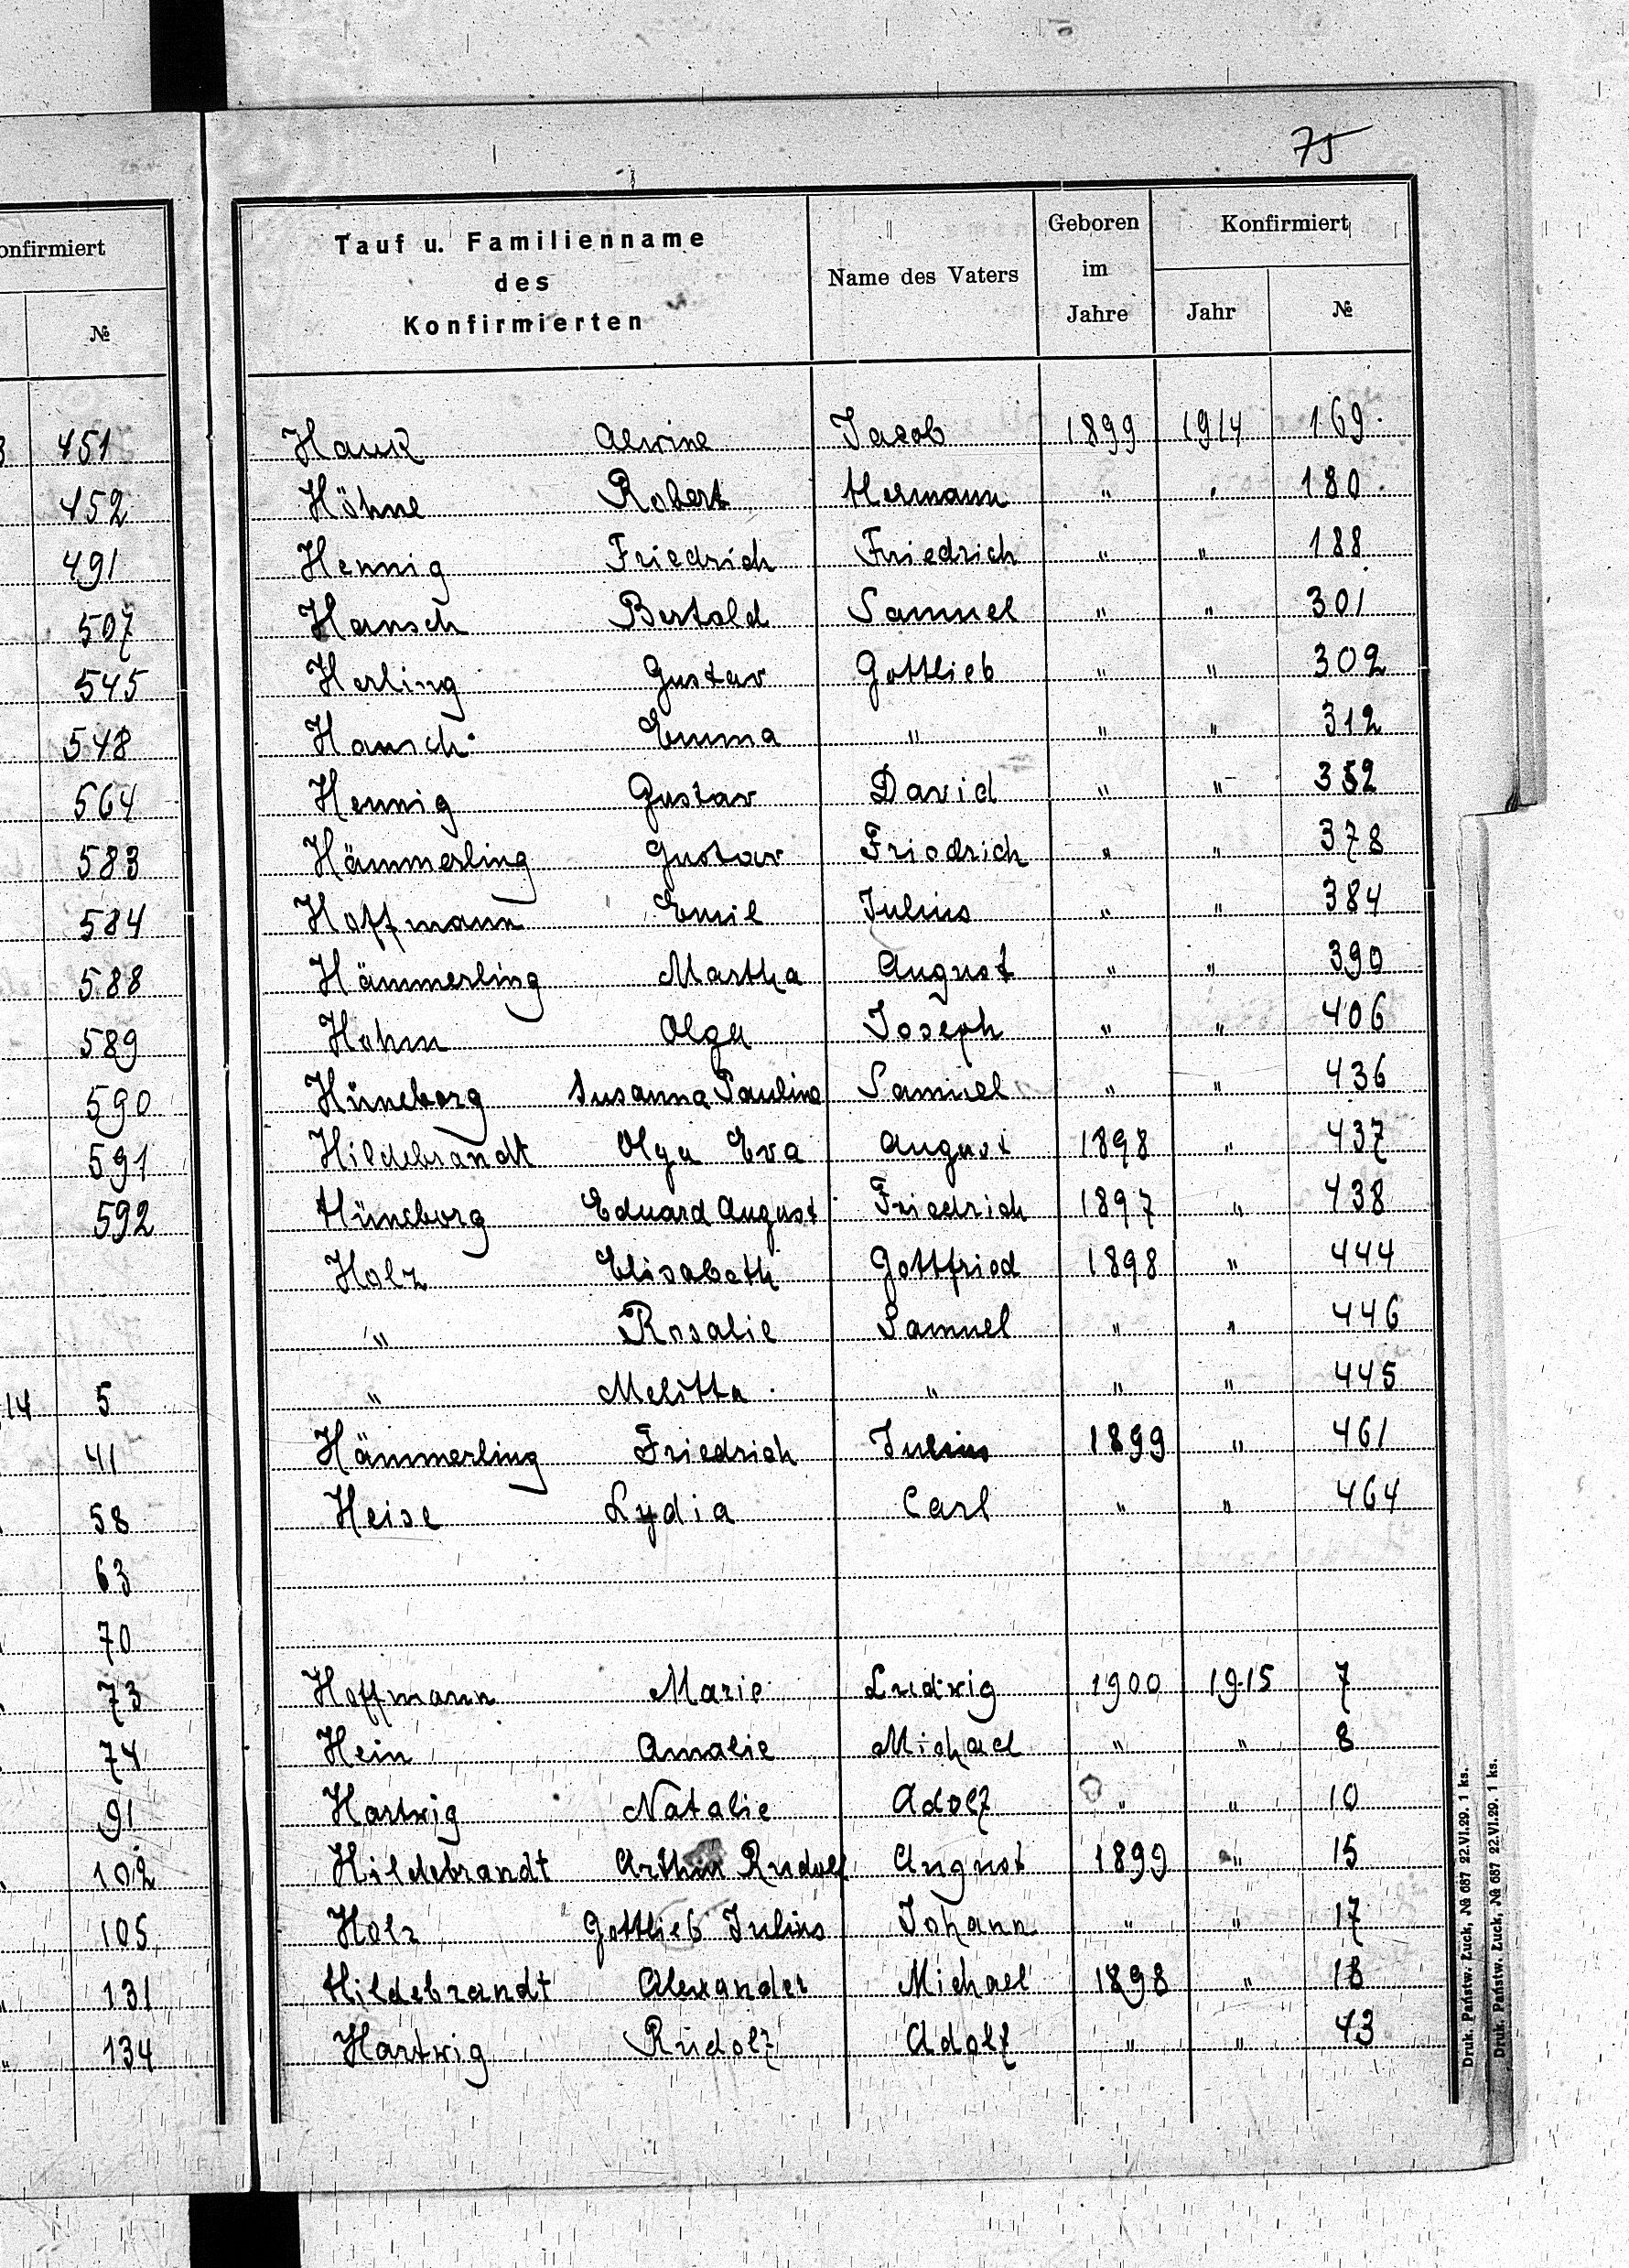 75
onfirmiert
№
451
452
491
507
545
548
564
583
584
588
589
590
591
592
14 5
41
58
63
70
73
74
91
102
105
131
" 134
Tauf u. Familienname
des
Konfirmierten
Name des Vaters
Geboren
im
Jahre
Konfirmiert
Jahr
№
Hauk Alwine Jacob 1899 1914 169.
Höhne Robert Hermann " " 180.
Hennig Friedrich Friedrich " " 188
Hansch Bertold Samuel " " 301
Herling Gustav Gottlieb " " 302
Hansch Emma " " " 312
Hennig Gustav David " " 352
Hämmerling Gustav Friedrich " " 378
Hoffmann Emil Julius " " 384
Hämmerling Martha August " " 390
Hohm Olga Joseph " " 406
Hüneborg Susanna Pauline Samuel " " 436
Hildebrandt Olga Eva August 1898 " 437
Hüneborg Eduard August Friedrich 1897 " 438
Holz Elisabeth Gottfried 1898 " 444
" Rosalie Samuel " " 446
" Melitta " " " 445
Hämmerling Friedrich Julius 1899 " 461
Heise Lydia Carl " " 464
Hoffmann Marie Ludwig 1900 1915 7
Hein Amalie Michael " " 8
Hartwig Natalie Adolf " " 10
Hildebrandt Arthur Rudolf August 1899 " 15
Holz Gottlieb Julius Johann " " 17
Hildebrandt Alexander Michael 1898 " 18
Hartwig Rudolf Adolf " " 43
Druk. Państw. Łuck, № 687 22.VI.29. 1 ks.
Druk. Państw. Łuck, № 687 22.VI.29. 1 ks.